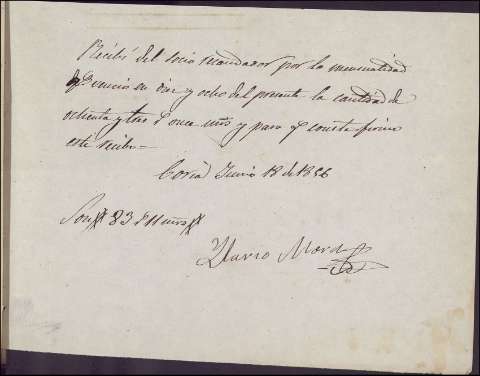 Recibí del socio recaudador por la mensualidad
q.e vencio en diez y ocho del presente la cantidad de
ochenta y tres r.s once mrs y para q.e conste firmo
este recibo =
Coria Junio 18 de 1856
Son 83 r.s 11 mrs
Ylario